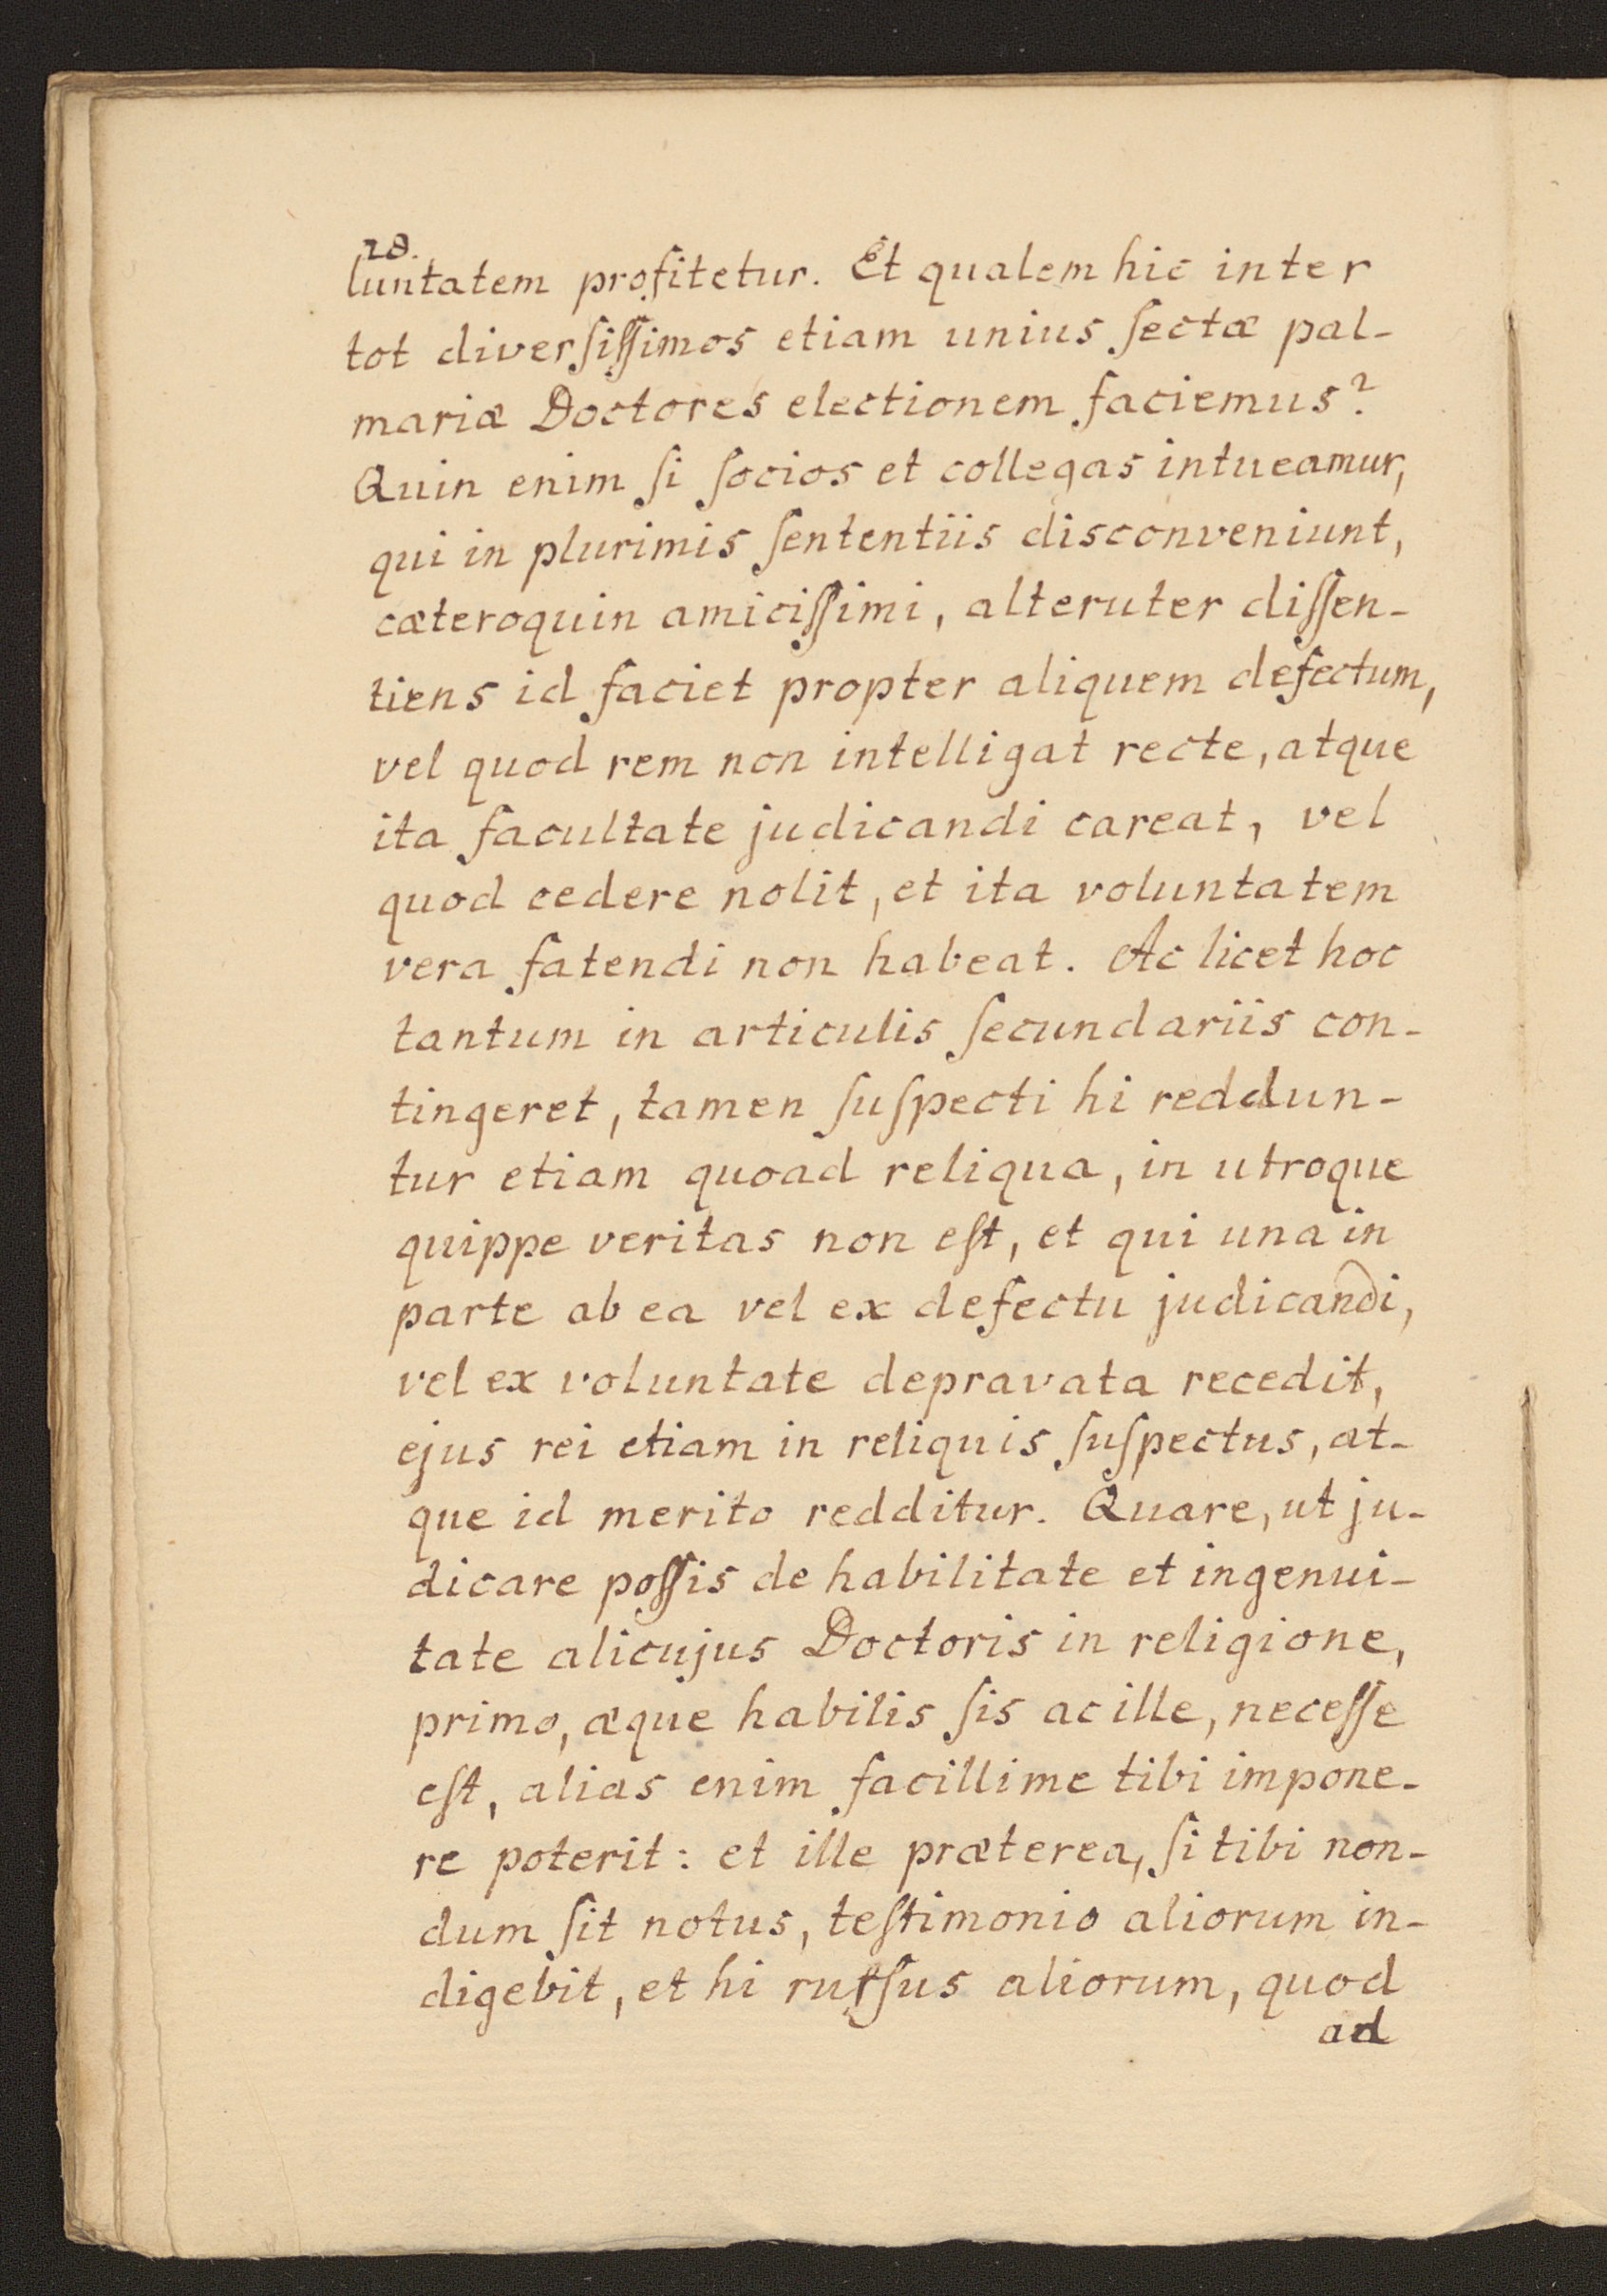 28.
luntatem profitetur. Et qualem hic inter
tot diverſiſſimos etiam unius ſectæ pal-
mariæ Doctores electionem faciemus?
Quin enim ſi ſocios et collegas intueamur,
qui in plurimis ſententiis disconveniunt,
cæteroquin amiciſſimi, alteruter diſſen-
tiens id faciet propter aliquem defectum,
vel quod rem non intelligat recte, atque
ita facultate judicandi careat, vel
quod cedere nolit, et ita voluntatem
vera fatendi non habeat. Ac licet hoc
tantum in articulis ſecundariis con-
tingeret, tamen ſuſpecti hi reddun-
tur etiam quoad reliqua, in utroque
quippe veritas non eſt, et qui una in
parte ab ea vel ex defectu judicandi,
vel ex voluntate depravata recedit,
ejus rei etiam in reliquis ſuſpectus, at-
que id merito redditur. Quare, ut ju-
dicare poſſis de habilitate et ingenui-
tate alicujus Doctoris in religione,
primo, æque habilis ſis ac ille, neceſſe
eſt, alias enim facillime tibi impone-
re poterit: et ille præterea, ſi tibi non-
dum ſit notus, teſtimonio aliorum in-
digebit, et hi rurſus aliorum, quod
ad